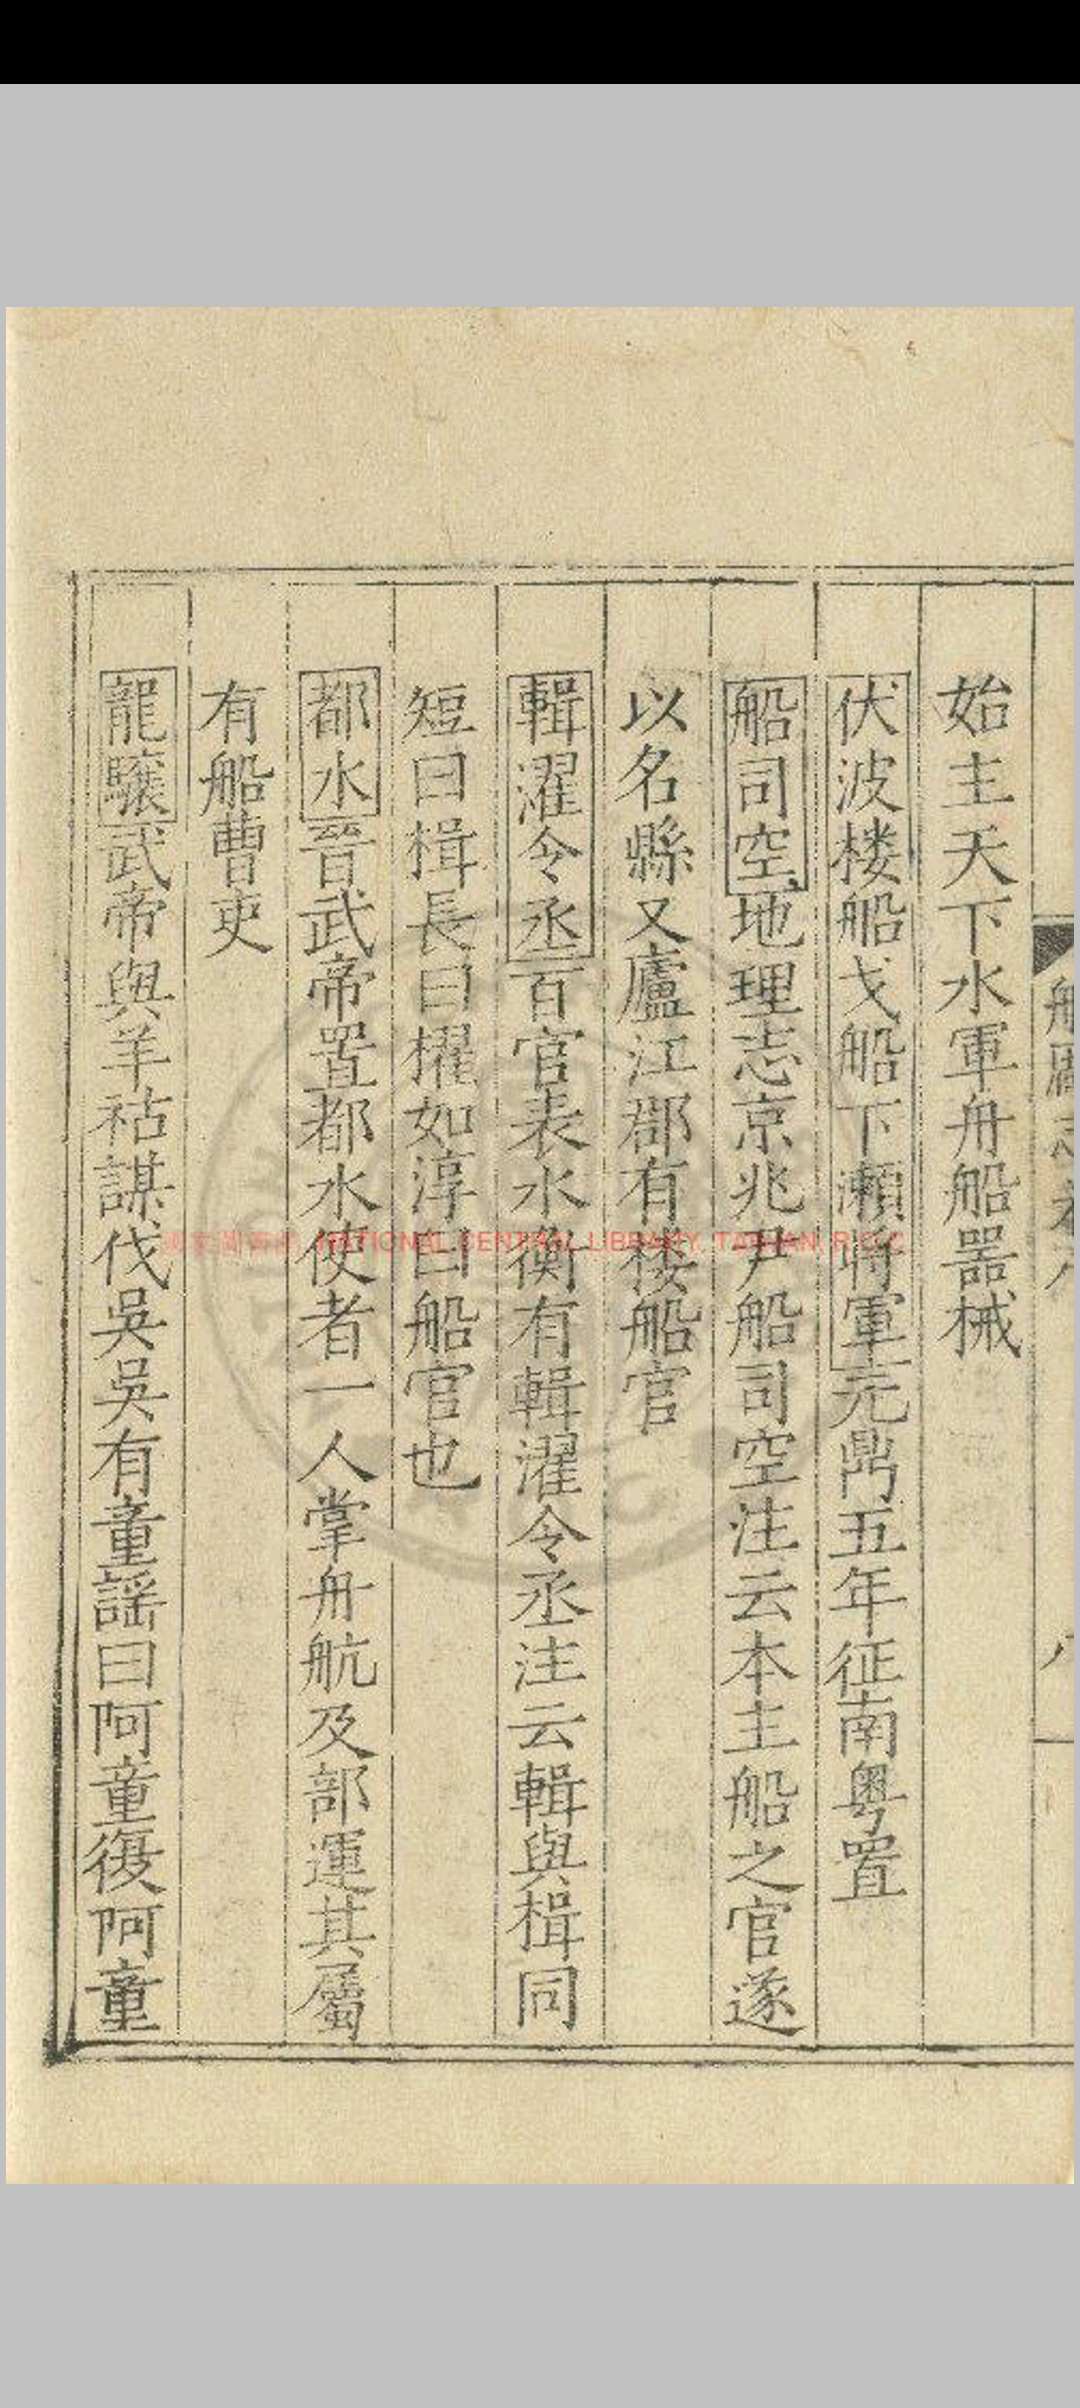 始主天下水軍舟船噐械
伏波楼船戈船下瀬將軍元鼎五年征南粤置
船司空地理志京兆尹船司空注云本主船之官遂
以名縣又廬江郡有楼船官
輯濯令丞百官表水衡有輯濯令丞注云輯與楫同
短曰楫長曰櫂如淳曰船官也
都水晉武帝置都水使者一人掌舟航及部運其屬
有船曹吏
龍驤武帝與羊祜謀伐吳吳有童謡曰阿童復阿童
國家圖書館 NATIONAL CENTRAL LIBRARY, TAIWAN, R.O.C